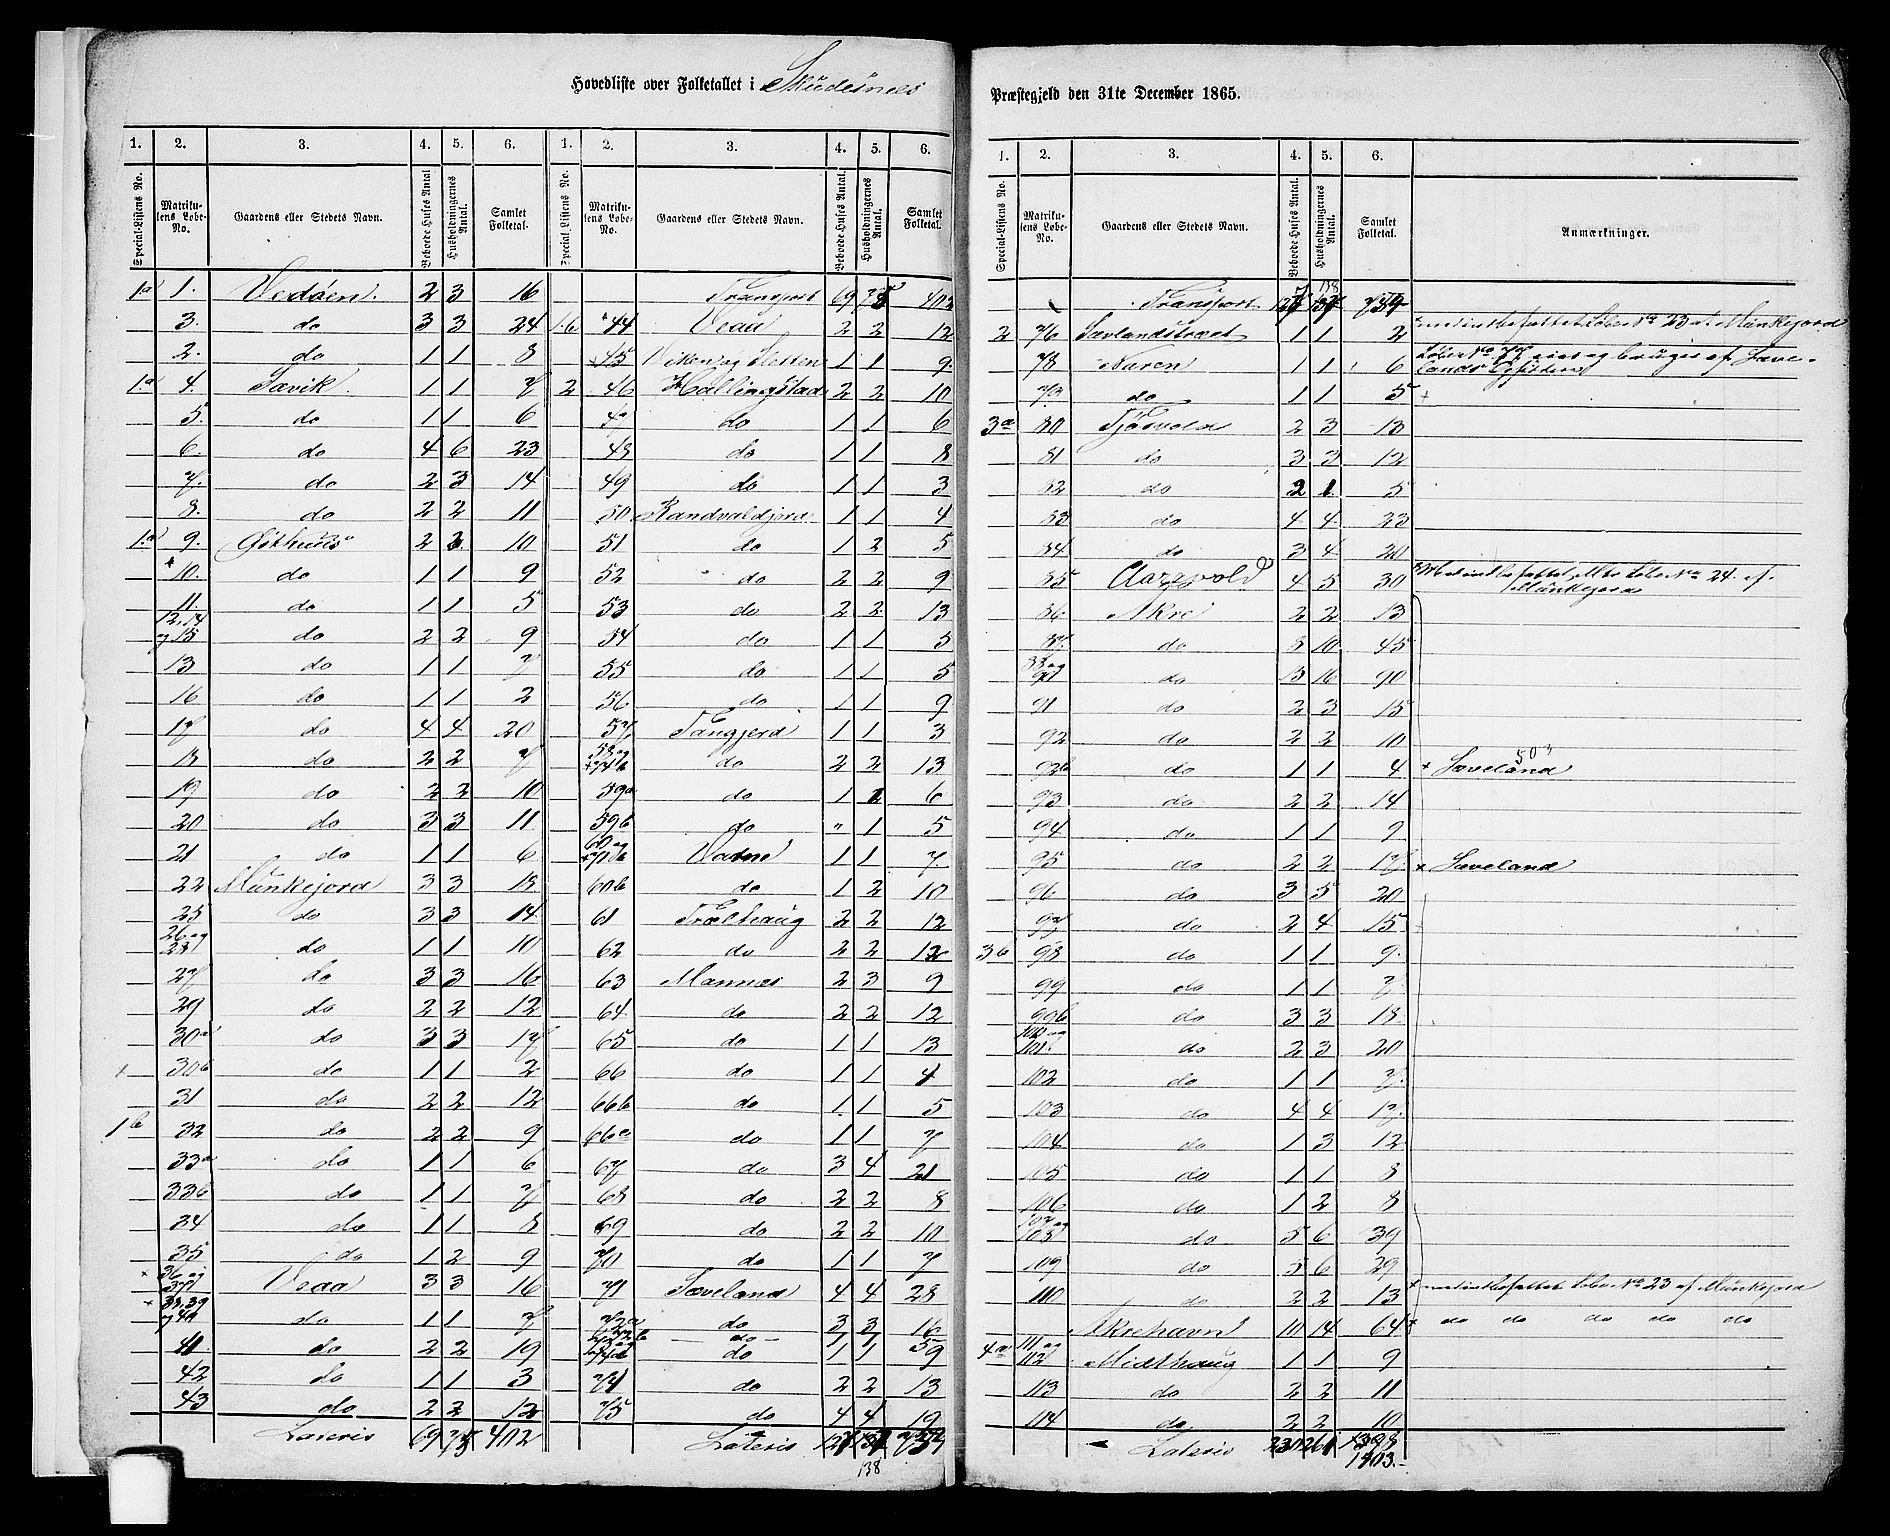 Hovedliste over Folketallet i Skudesnes
Præstegjeld den 31te December 1865.
1. 2. 3. 4. 5. 6. 1. 2. 3. 4. 5. 6.
Special-Listens No. Matrikulens Løbe-No. Gaardens eller Stedets Navn. Beboede Huses Antal. Husholdningernes Antal. Samlet Folketal. Special-Listens No. Matrikulens Løbe-No. Gaardens eller Stedets Navn. Beboede Huses Antal. Husholdningernes Antal. Samlet Folketal.
1a 1. Vedøen. 2 3 16
3. do 3 3 24
2. do 1 1 8
1.a 4. Sævik. 1 1 7
5. do 1 1 6
6. do 4 6 23
7. do 2 3 14
8. do 2 2 11
1.a 9. Østhuus 2 3 10
10. do 1 1 9
11. do 1 1 5
12, 14 og 15 do 2 2 9
13 do 1 1 7
16 do 1 1 2
17 do 4 4 20
18 do 2 2 7
19 do 2 2 10
20 do 3 3 11
21 do 1 1 6
22 Munkejord 3 3 18
25 do 3 3 14
26 og 28 do 1 1 10
27 do 3 3 16
29 do 2 2 12
30a do 3 3 17
30b do 1 1 2
31 do 2 2 12
1b 32 do 2 2 9
33a do 1 1 6
33b do 1 1 7
34 do 1 1 8
35 do 1 2 9
36 og 37 Veaa 3 3 16
38, 39 og 40 do 1 1 7
41 do 2 2 19
42 do 1 1 3
43 do 2 2 12
Lateris 69 75 402
Transport 69 75 402
1.b 44 Veaa 2 2 12
45 Viken og Sletten 1 1 9
2 46 Hallingstad 2 2 10
47 do 1 1 6
48 do 1 1 8
49 do 1 1 3
50 Randvaldjord 1 1 4
51 do 1 2 5
52 do 2 2 9
53 do 2 2 13
54 do 1 1 5
55 do 1 1 5
56 do 1 1 9
57 Tangjerd 1 1 3
58 og 74b do 2 2 13
59a do 1 1 6
59b do " 1 5
60 og 70b Vatne 1 1 7
60b do 1 2 10
61 Trælhaug 2 2 12
62 do 2 2 12
63 Mannes 2 3 9
64. do 2 2 12
65 do 1 1 13
66 do 1 1 4
66b do 1 1 5
66c do 1 1 7
67 do 3 4 21
68 do 2 2 8
69 do 2 2 10
70 do 1 1 7
71 Sæveland 4 4 28
72a do 3 3 16
72b do 1 1 5
do 1 1 9
do 2 2 13
75 do 4 4 19
Lateris
138
1. 2. 3. 4. 5. 6.
Special-Listens No. Matrikulens Løbe-No. Gaardens eller Stedets Navn. Beboede Huses Antal. Husholdningernes Antal. Samlet Folketal. Anmærkninger.
138
Transport
2 76 Sævlandstræet 1 1 2 medindbefattet Løbe No 23 af Munkejord
78 Naren 1 1 6
79 do 1 1 5
3a 80 Tjøsvold 2 3 13
81 do 3 3 12
82 do 2 1 5
83 do 4 4 23
84 do 3 4 20
85 Aaresvold 4 5 30 Medindbefattet Løbe No 24 af Munkejord
86 Akre 2 2 13
87 do 8 10 45
88 og 90 do 13 16 90
91 do 2 3 15
92 do 2 2 10
92b do 1 1 4 + Sæveland 503
93 do 2 2 14
94 do 1 1 9
95 do 2 2 17 + Sæveland
96 do 3 5 20
97 do 2 4 15
3b 98 do 1 1 9
99 do 1 1 7
99b do 3 3 18
100 og 101 do 2 3 20
102 do 1 1 7
103 do 4 4 17
104 do 1 3 12
105 do 1 1 8
106 do 1 2 8
107 og 108 do 5 6 39
109 do 5 6 29
110 do 2 2 13 + medindbefattet Løbe No 23 af Munkejord
Akrehavn 10 14 64 + do do do do do
4a 111 og 112 Midthaug 1 1 9
113 do 2 2 11
114 do 2 2 10
Lateris 230 261 1398
1403.